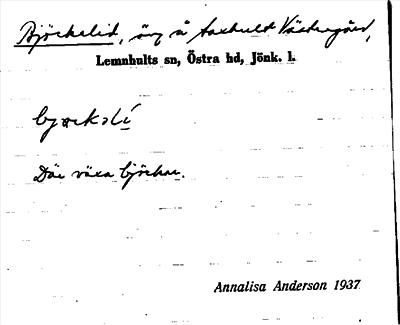 Björkelid, äng å Saxhult Västregård,
Lemnhults sn, Östra hd, Jönk. l.
bjœkəlí
Där växa björkar.
Annalisa Anderson 1937